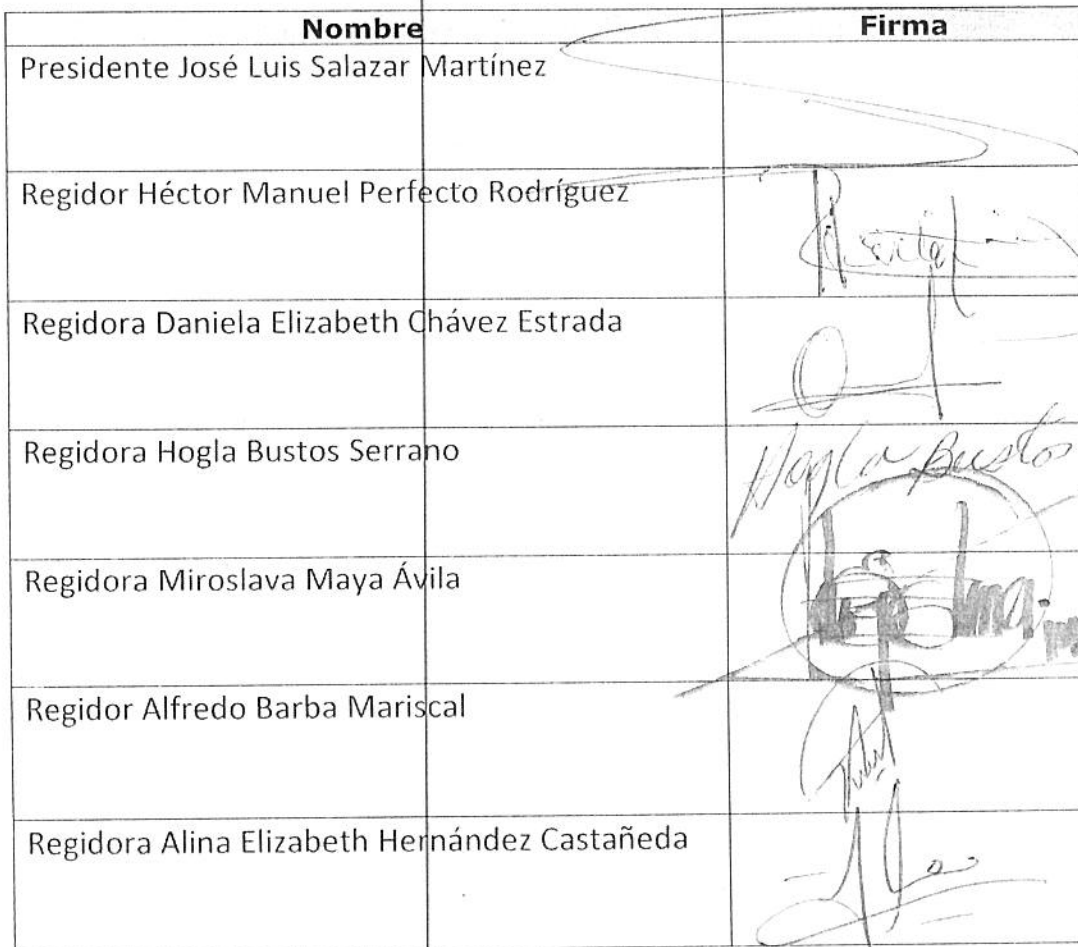 Nombre Firma
Presidente José Luis Salazar Martínez
Regidor Héctor Manuel Perfecto Rodríguez
Regidora Daniela Elizabeth Chávez Estrada
Regidora Hogla Bustos Serrano Hogla Bustos
Regidora Miroslava Maya Ávila
Regidor Alfredo Barba Mariscal
Regidora Alina Elizabeth Hernández Castañeda